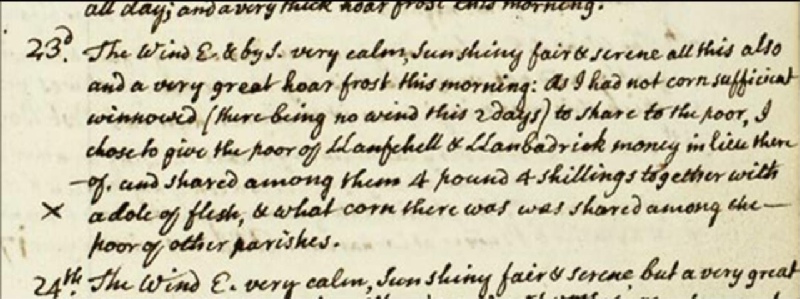 all day; and a very thick hoar frost this morning.
23d. The Wind E. & by S. very calm, Sun shiny fair & serene all this also
and a very great hoar frost this morning: As I had not corn sufficient
winnowed (there being no wind this 2 days) to share to the poor, I
chose to give the poor of Llanfchell & Llanbadrick money in lieu there
of. and shared among them 4 pound 4 shillings together with
× a dole of flesh, & what corn there was was shared among the —
poor of other parishes.
24th. The Wind E. very calm, Sun shiny fair & serene but a very great